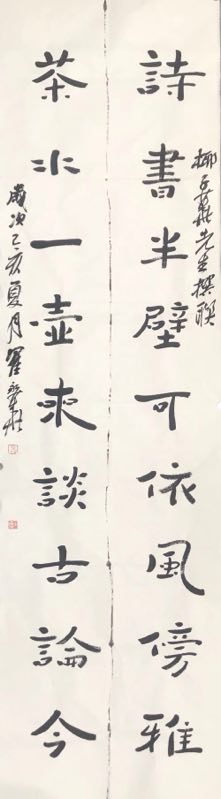 詩書半壁可依風傍雅
柳子鼎先生撰联
茶水一壺來談古論今
歲次乙亥夏月